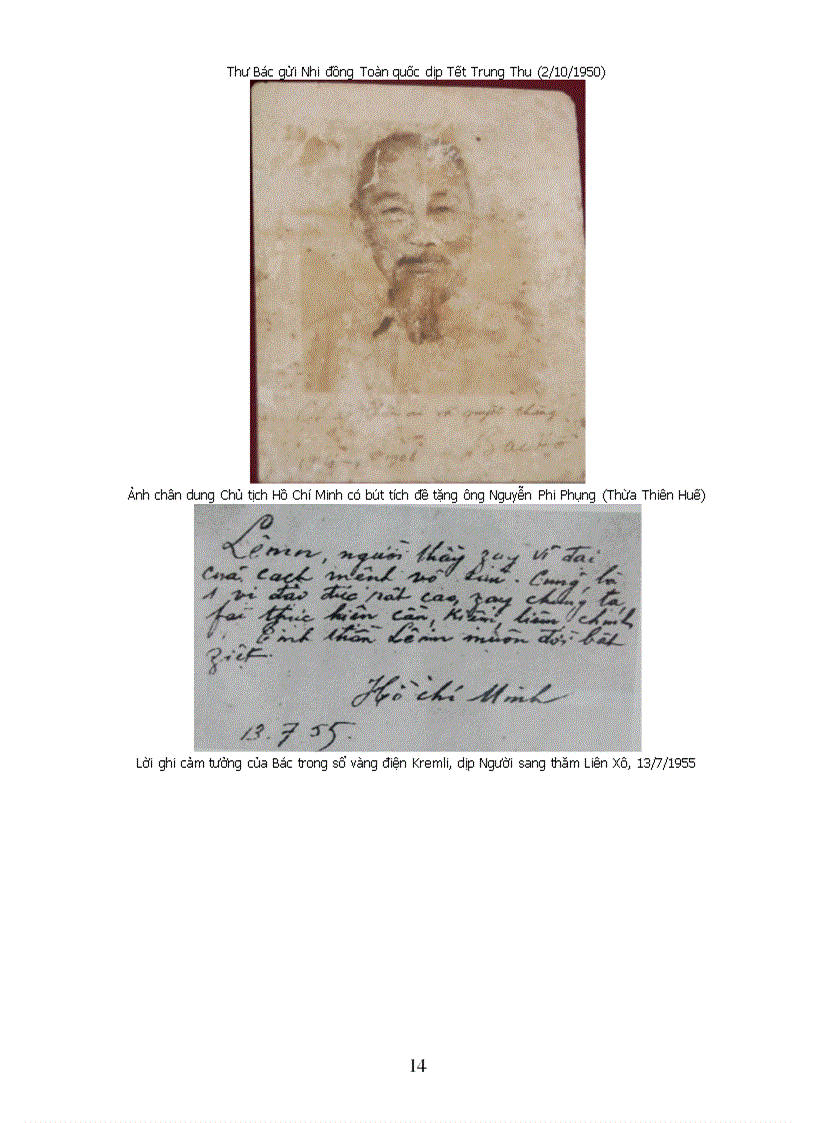 Thư Bác gửi Nhi đồng Toàn quốc dịp Tết Trung Thu (2/10/1950)
và quyết thắng
Ảnh chân dung Chủ tịch Hồ Chí Minh có bút tích đề tặng ông Nguyễn Phi Phụng (Thừa Thiên Huế)
Lênin, người thầy zạy vĩ đại
của cách mệnh vô sản. Cũng là
1 vị đạo đức rất cao, zạy chúng ta
fải thực hiện cần, kiệm, liêm, chính
. Tinh thần Lênin muôn đời bất
ziệt.
Hồ Chí Minh
13.7.55.
Lời ghi cảm tưởng của Bác trong sổ vàng điện Kremli, dịp Người sang thăm Liên Xô, 13/7/1955
14